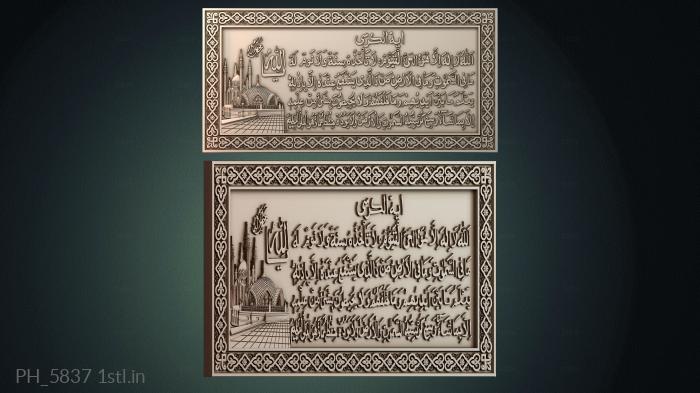 اية الكرسى
الله
الله لا اله الا هو الحي القيوم لا تأخذه سنة ولا نوم له
مافي السموت ومافي الارض من ذا الذي يشفع عنده الا باذنه
يعلم ما بين ايديهم وما خلفهم ولا يحيطون بشئ من علمه
الا بما شاء وسع كرسيه السموت والارض ولا يؤده حفظهما
اية الكرسى
الله
الله لا اله الا هو الحي القيوم لا تأخذه سنة ولا نوم له
مافي السموت ومافي الارض من ذا الذي يشفع عنده الا باذنه
يعلم ما بين ايديهم وما خلفهم ولا يحيطون بشئ من علمه
الا بما شاء وسع كرسيه السموت والارض ولا يؤده حفظهما
PH_5837 1stl.in